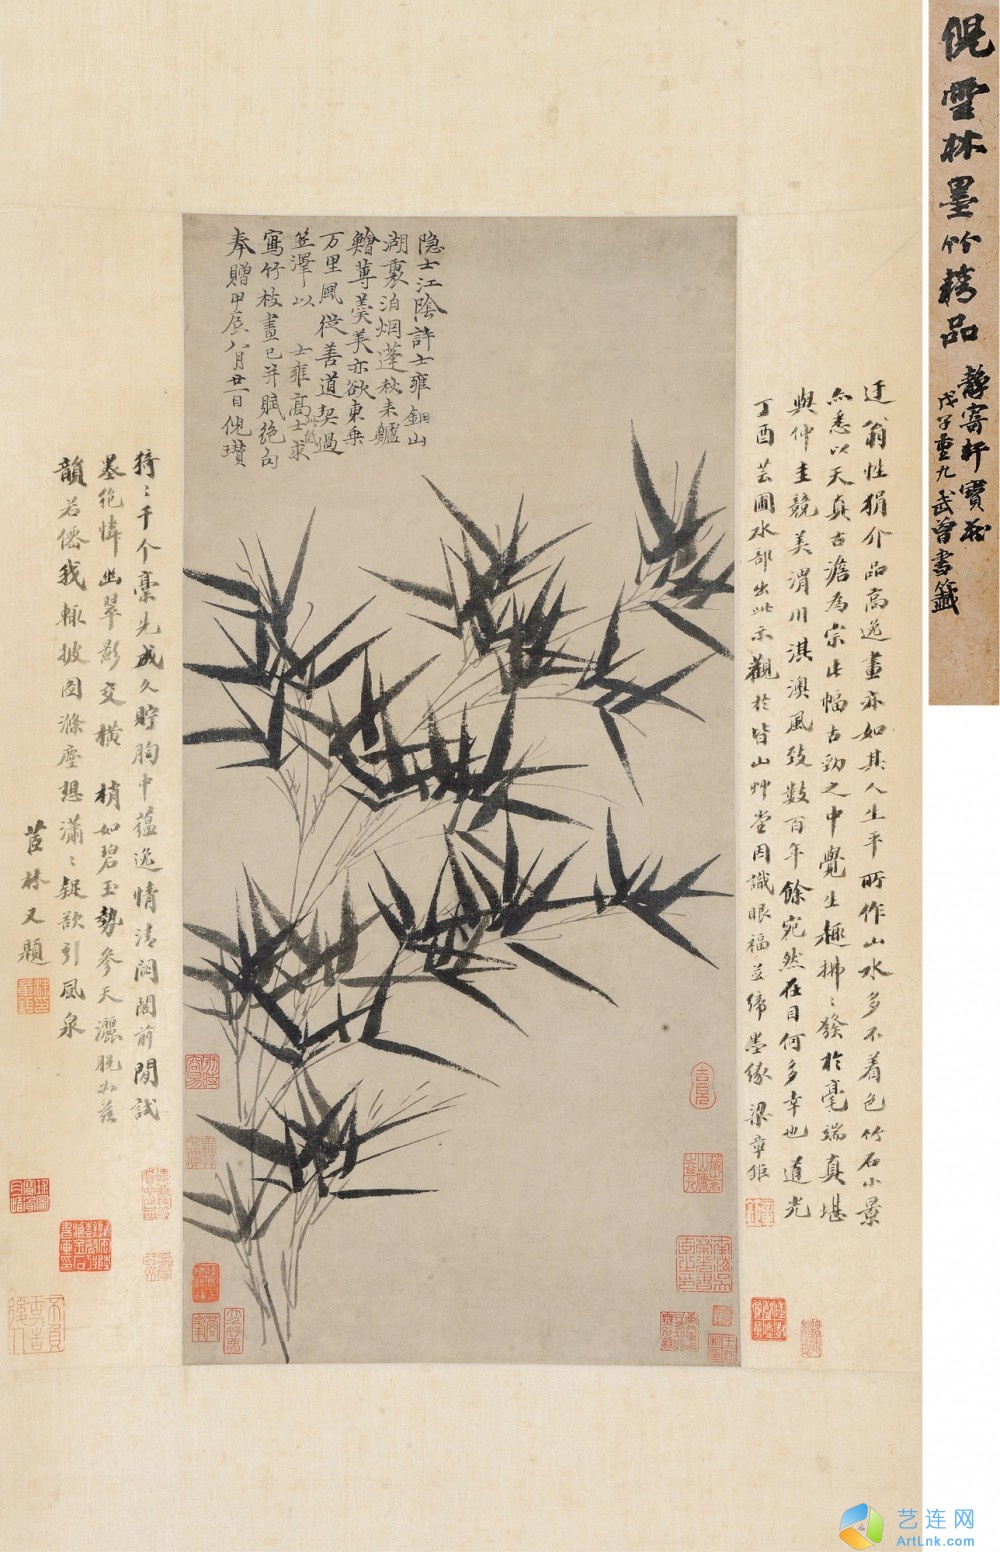 倪雲林墨竹精品
靜寄軒寶藏
戊子重九武曾書籤
隐士江陰許士雍銅山
湖裏泊烟蓬秋未鱸
鱠蓴羹美亦欲東乗
万里風從善道契過
笠澤以 士雍高士求
寫竹枝畫已并賦絶句
奉贈甲辰八月廿一日倪瓚
迂翁性狷介品高逸畫亦如其人生平所作山水多不着色竹石小景
亦悉以天真古澹為宗此幅古勁之中覺生趣拂〻發於毫端真堪
與仲圭競美渭川淇澳風致數百年餘宛然在目何多幸也道光
丁酉芸圃水部出此示觀於皆山艸堂因識眼福並締墨緣 梁章鉅
猗〻千个稾先成久貯胸中蕴逸情清閟閣前閒試
墨絶憐幽翠影交橫 梢如碧玉勢參天灑脫如兹
韻若僊我輙披图滌塵想瀟〻疑欲引風泉
茝林又題
艺连网
ArtLnk.com